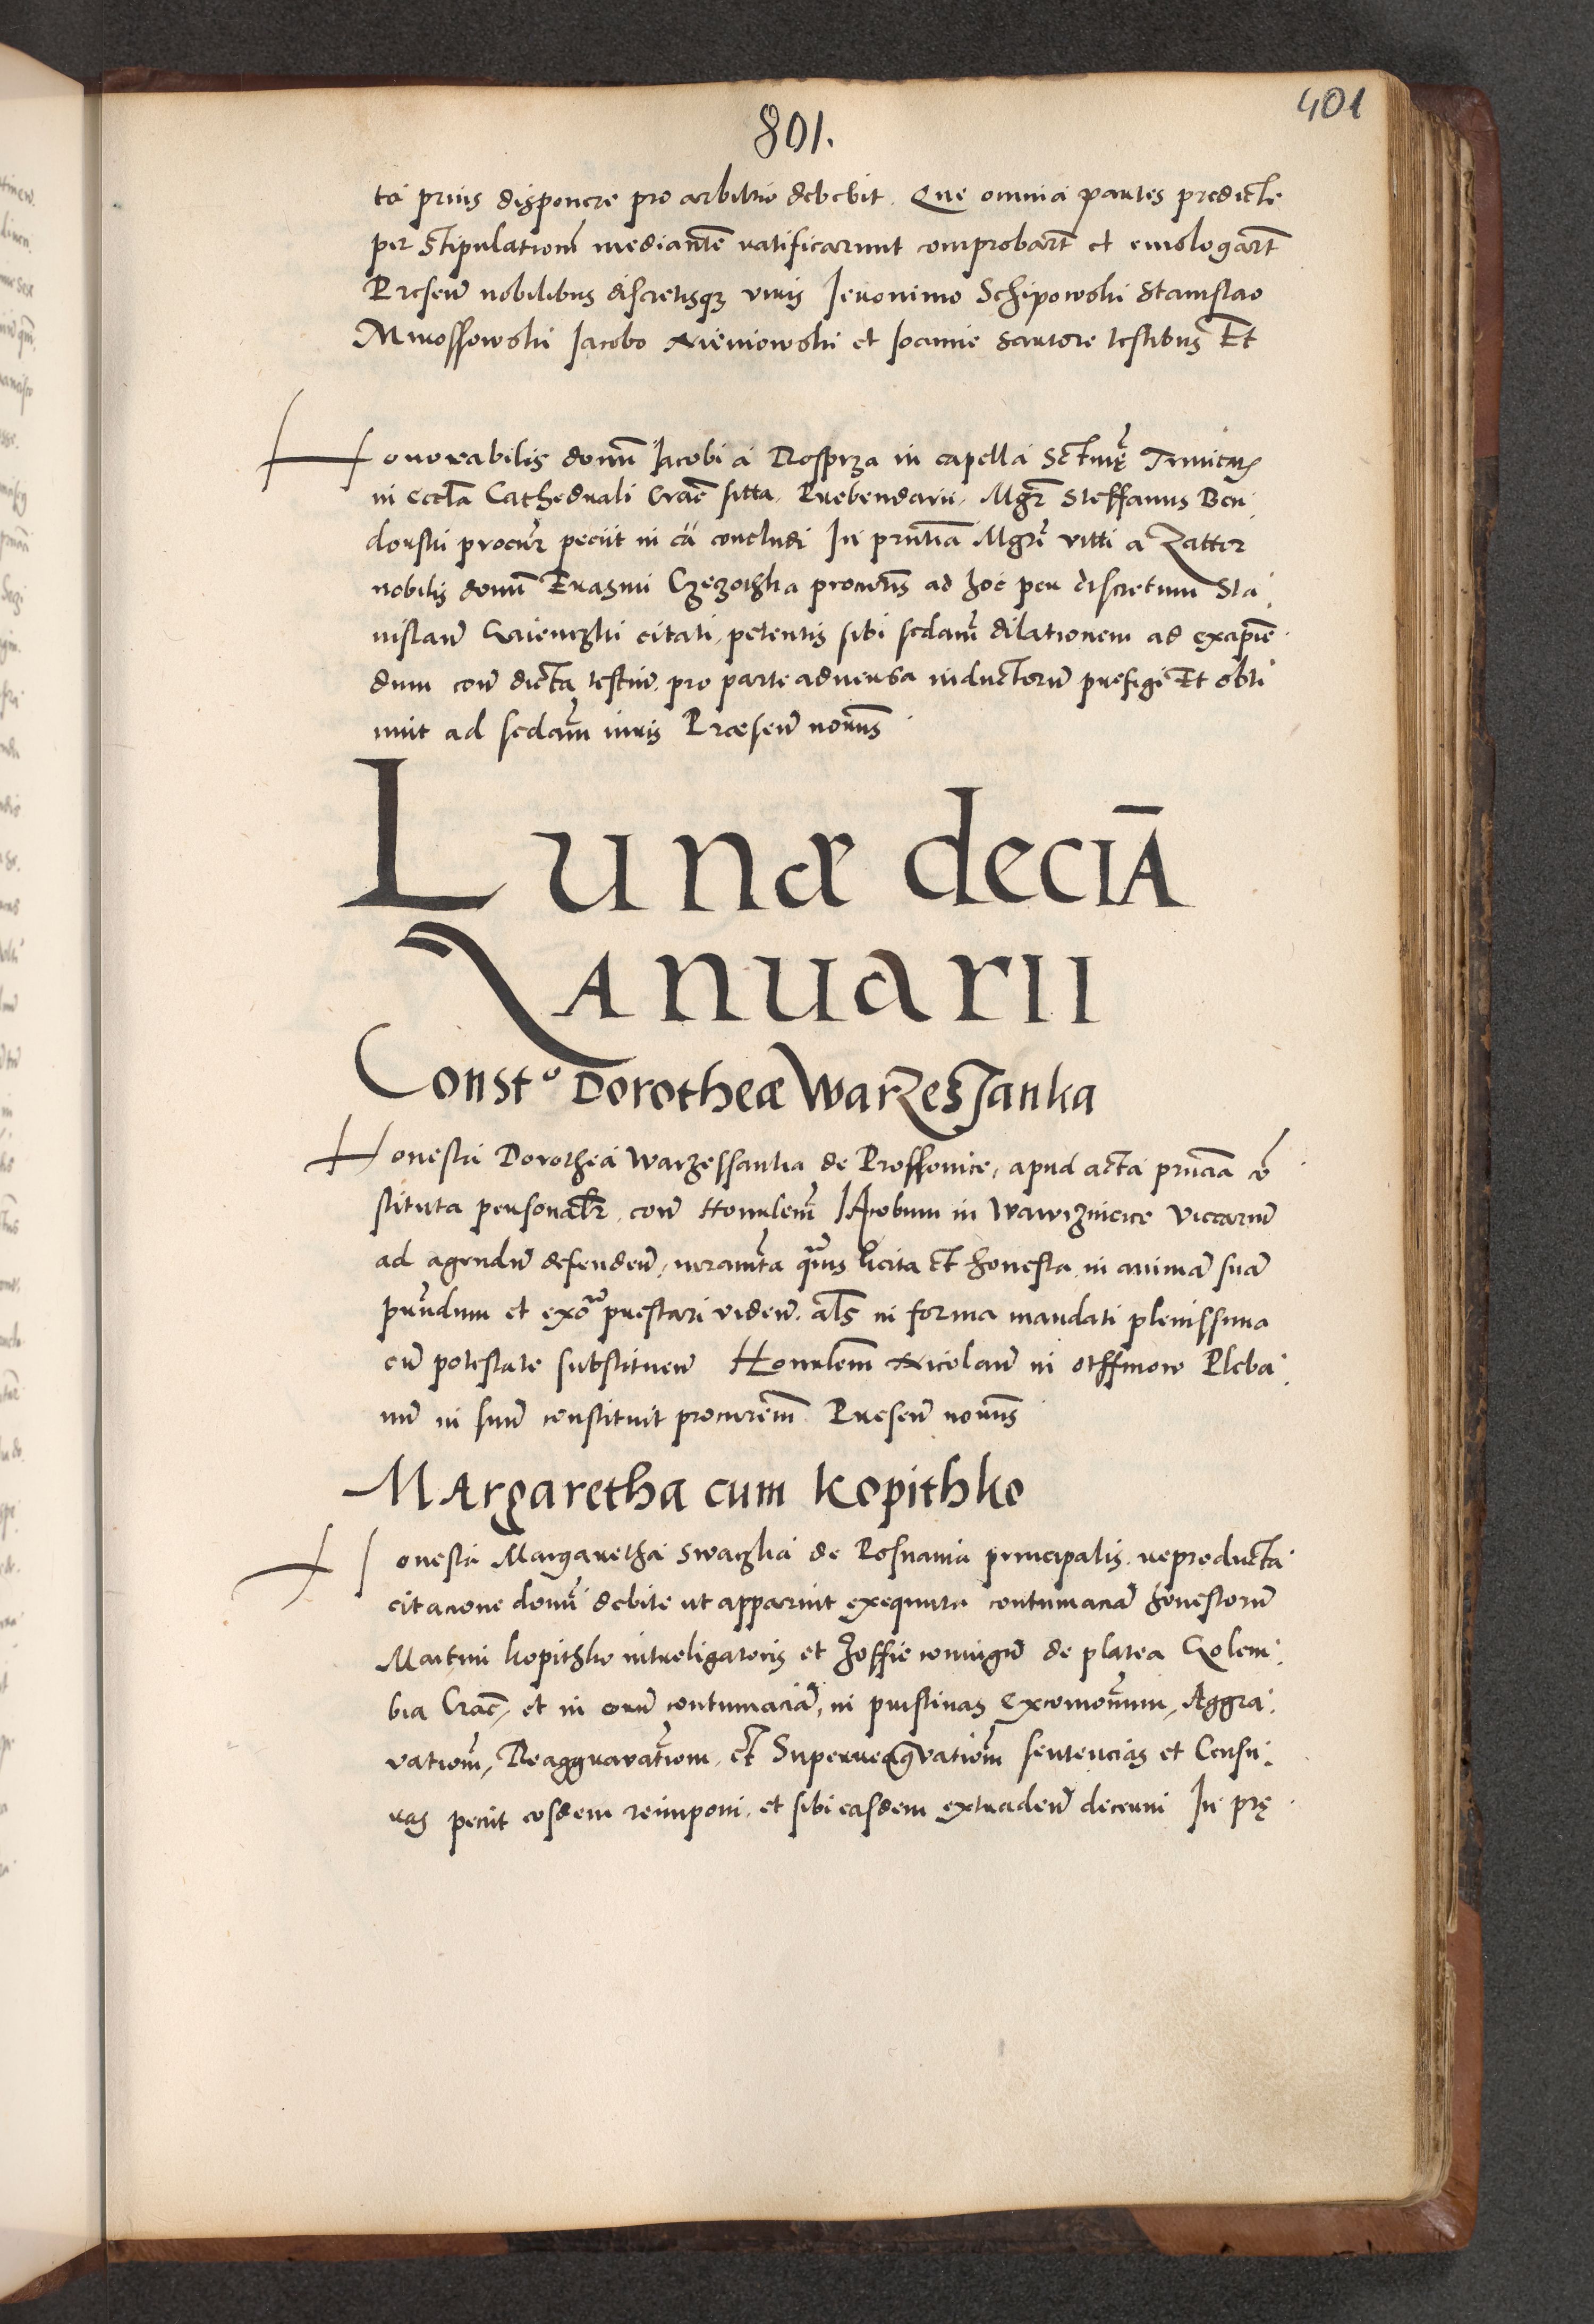 401
801.
ta prius disponere pro arbitrio debebit. Que omnia partes predicte
per stipulationem mediantē ratificarunt comprobarūt et emologarūt
Presen̄ nobilibus discretisq₃ viris Ieronimo Schipowski Stanislao
Mrossowski Iacobo Nieniowski et Ioanne Sartore testibus Et
Honorabilis domī Iacobi a Rosprza in capella Sctmę Trinitatis
in eccla Cathedrali Crac̄ sitta, Prebendarii, Mgr̄ Steffanus Ben
donski procur̄ peciit in cā concludi In pn̄tia Mgri vitti a Zatter
nobilis domī Erasmi Czeczothka procuris ad hoc per discretum Sta
nislau̅ citati, petentis sibi scdam dilationem ad excipie̅
dum con̄ dicta testiu̅ pro parte adversa inductoru̅ prefigi Et obti
nuit ad scdam iuris Præsen̄ no͞r͞us
Lunæ deciā
Ianuarii
Constᵒ Dorotheæ Warzessanka
Honesta Dorothea Warzessanka de Prossovice, apud acta pn̄cia cō
stituta personalr̄, con̄ Honrlem̄ IAcobum in Wawrznicice Viccariu̅
ad agendu̅ defenden̄, iuramta quevis licita et honesta in animā suā
prn̄dum et exō prestari viden̄. als̄ in forma mandati plenissima
cū potestate substituen̄ Honrlem̄ Nicolau̅ in Pleba
nū in suu̅ constituit procurem̄ Presen̄ no͞r͞us
MArgaretha cum Kopithko
Honesta Margaretha de Posnania principalis, reproducta
citacione domī debite ut apparuit exequuta contumaciā honestoru̅
Martini Kopithko introligatoris et Zoffie coniugu̅ de platea Golem
bia Crac̄, et in eoru̅ contumaciā, in pristinas Excomonum, Aggra
vationū, Reaggravationum, et Superreagravationū sentencias et Censu
ras peciit eosdem reimponi, et sibi easdem extraden̄ decerni In prę